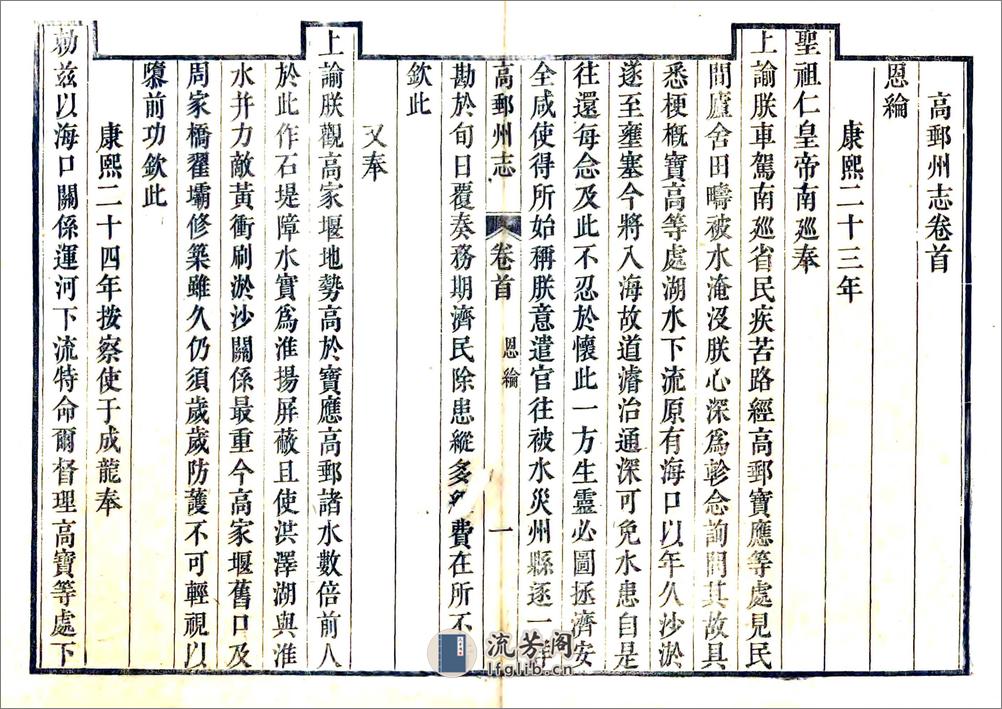 高郵州志卷首
恩綸
康熙二十三年
聖祖仁皇帝南廵奉
上諭朕車駕南廵省民疾苦路經高郵寶應等處見民
間廬舍田疇被水淹沒朕心深爲軫念詢問其故具
悉梗槪寶高等處湖水下流原有海口以年久沙淤
遂至壅塞今將入海故道濬治通深可免水患自是
往還每念及此不忍於懷此一方生靈必圖拯濟安
全咸使得所始稱朕意遣官往被水災州縣逐一
高郵州志 卷首 恩綸 一
勘於旬日覆奏務期濟民除患縱多費在所不
欽此
又奉
上諭朕觀高家堰地勢高於寶應高郵諸水數倍前人
於此作石堤障水實爲淮揚屏蔽且使洪澤湖與淮
水并力敵黃衝刷淤沙關係最重今高家堰舊口及
周家橋翟壩修築雖久仍須歲歲防護不可輕視以
隳前功欽此
康熙二十四年按察使于成龍奉
勅兹以海口關係運河下流特命爾督理高寶等處下
流芳阁
lfglib.cn